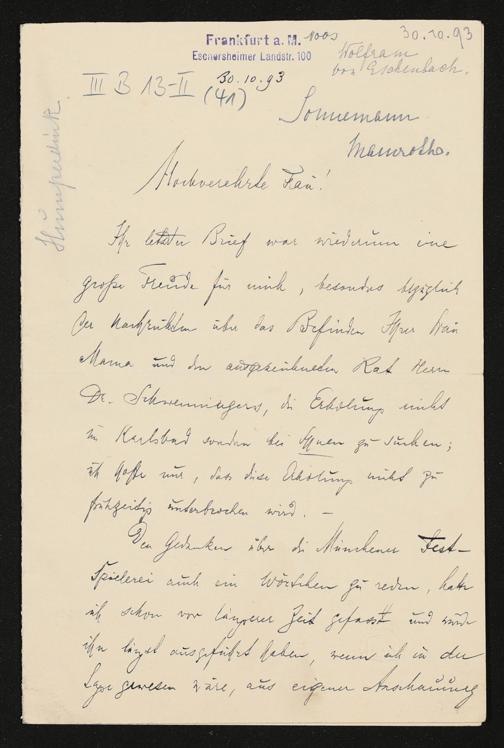 Frankfurt a. M.
Eschersheimer Landstr. 100
1003
30.10.93
Wolfram
von Eschenbach.
III B 13-II
30.10.93
(41)
Sonnemann
Mamroth.
Humperdinck
Hochverehrte Frau!
Ihr letzter Brief war wiederum eine
große Freude für mich, besonders bezüglich
der Nachrichten über das Befinden Ihrer Frau
Mama und den ausgezeichneten Rat Herrn
Dr. Schweningers, die Erholung nicht
in Karlsbad sondern bei Ihnen zu suchen;
ich hoffe nur, dass diese Erholung nicht zu
frühzeitig unterbrochen wird. –
Den Gedanken über die Münchener Fest-
Spielerei auch ein Wörtchen zu reden, hatte
ich schon vor längerer Zeit gefasst und würde
ihn längst ausgeführt haben, wenn ich in der
Lage gewesen wäre, aus eigener Anschauung